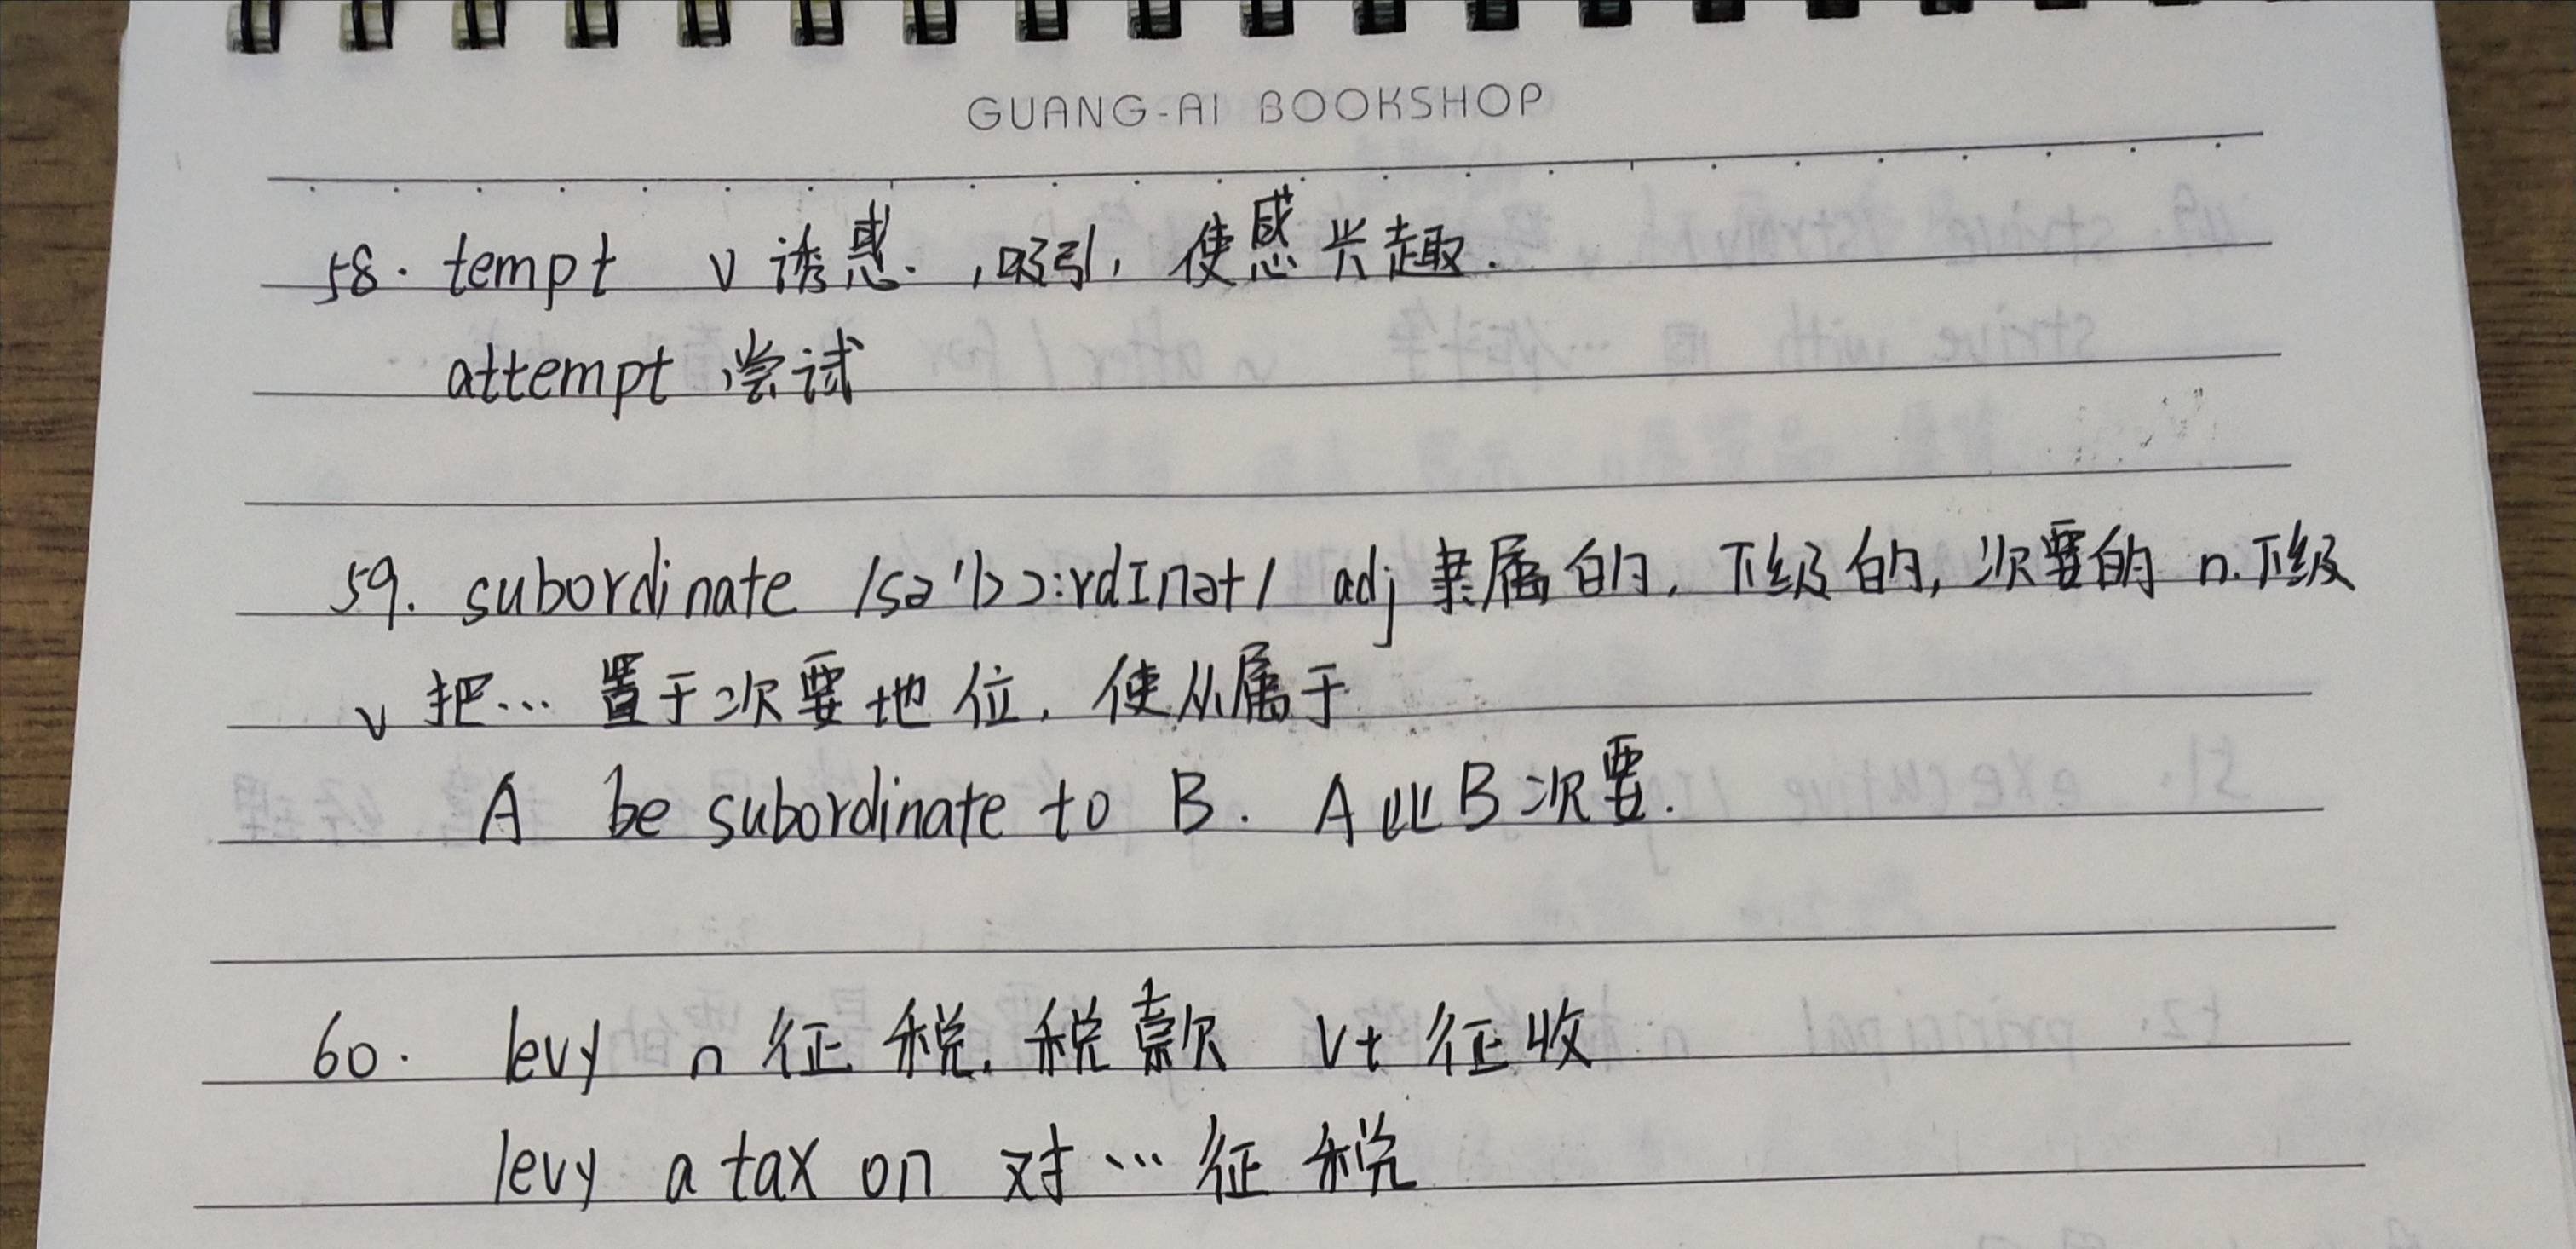 GUANG-AI BOOKSHOP
58. tempt v 诱惑. ,吸引, 使感兴趣.
attempt 尝试
59. subordinate /sə'bɔ:rdɪnət/ adj 隶属的, 下级的, 次要的 n.下级
v 把… 置于次要地位, 使从属于
A be subordinate to B. A比B次要.
60. levy n 征税, 税款 vt 征收
levy a tax on 对…征税